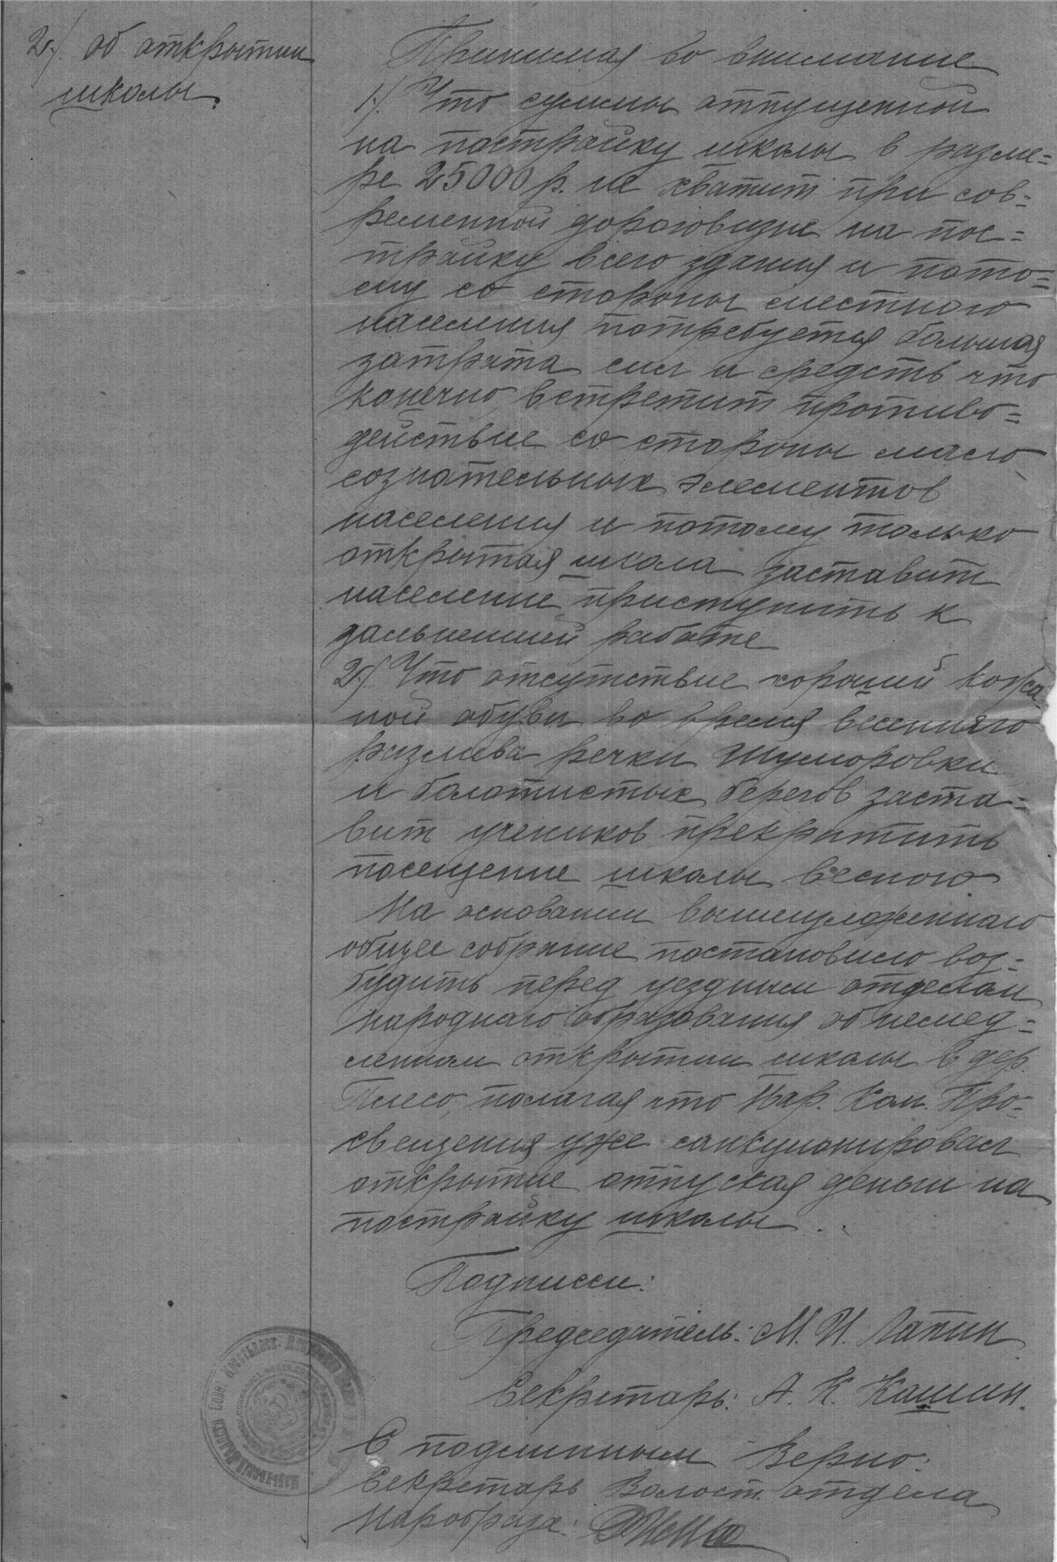 2./. об открытии
школы.
Принимая во внимание
1./. Что суммы отпущенной
на постройку школы в разме=
ре 25000 р. не хватит при сов=
ременной дороговизне на пос=
тройку всего здания и пото=
му со стороны местного
населения потребуется большая
затрата сил и средств что
конечно встретит противо=
действие со стороны мало
сознательных элементов
населения и потому только
открытая школа заставит
население приступить к
дальнейшей работе
2./. Что отсутствие хорошей кожа
ной обуви во время весеннего
разлива речки Шуморовки
и болотистых берегов заста=
вит учеников прекратить
посещение школы весною
На основании вышеизложеннаго
общее собрание постановило воз=
будить перед уездным отделом
народнаго образования об немед=
ленном открытии школы в дер.
Плесо, полагая что Нар. Ком. Про=
свещения уже санкционировал
открытие отпуская деньги на
постройку школы.
Подписи:
Председатель: М. И. Лапин
Секретарь: А. К. Кашин.
С подлинным Верно:
Секретарь Волост. отдела
Наробраза: